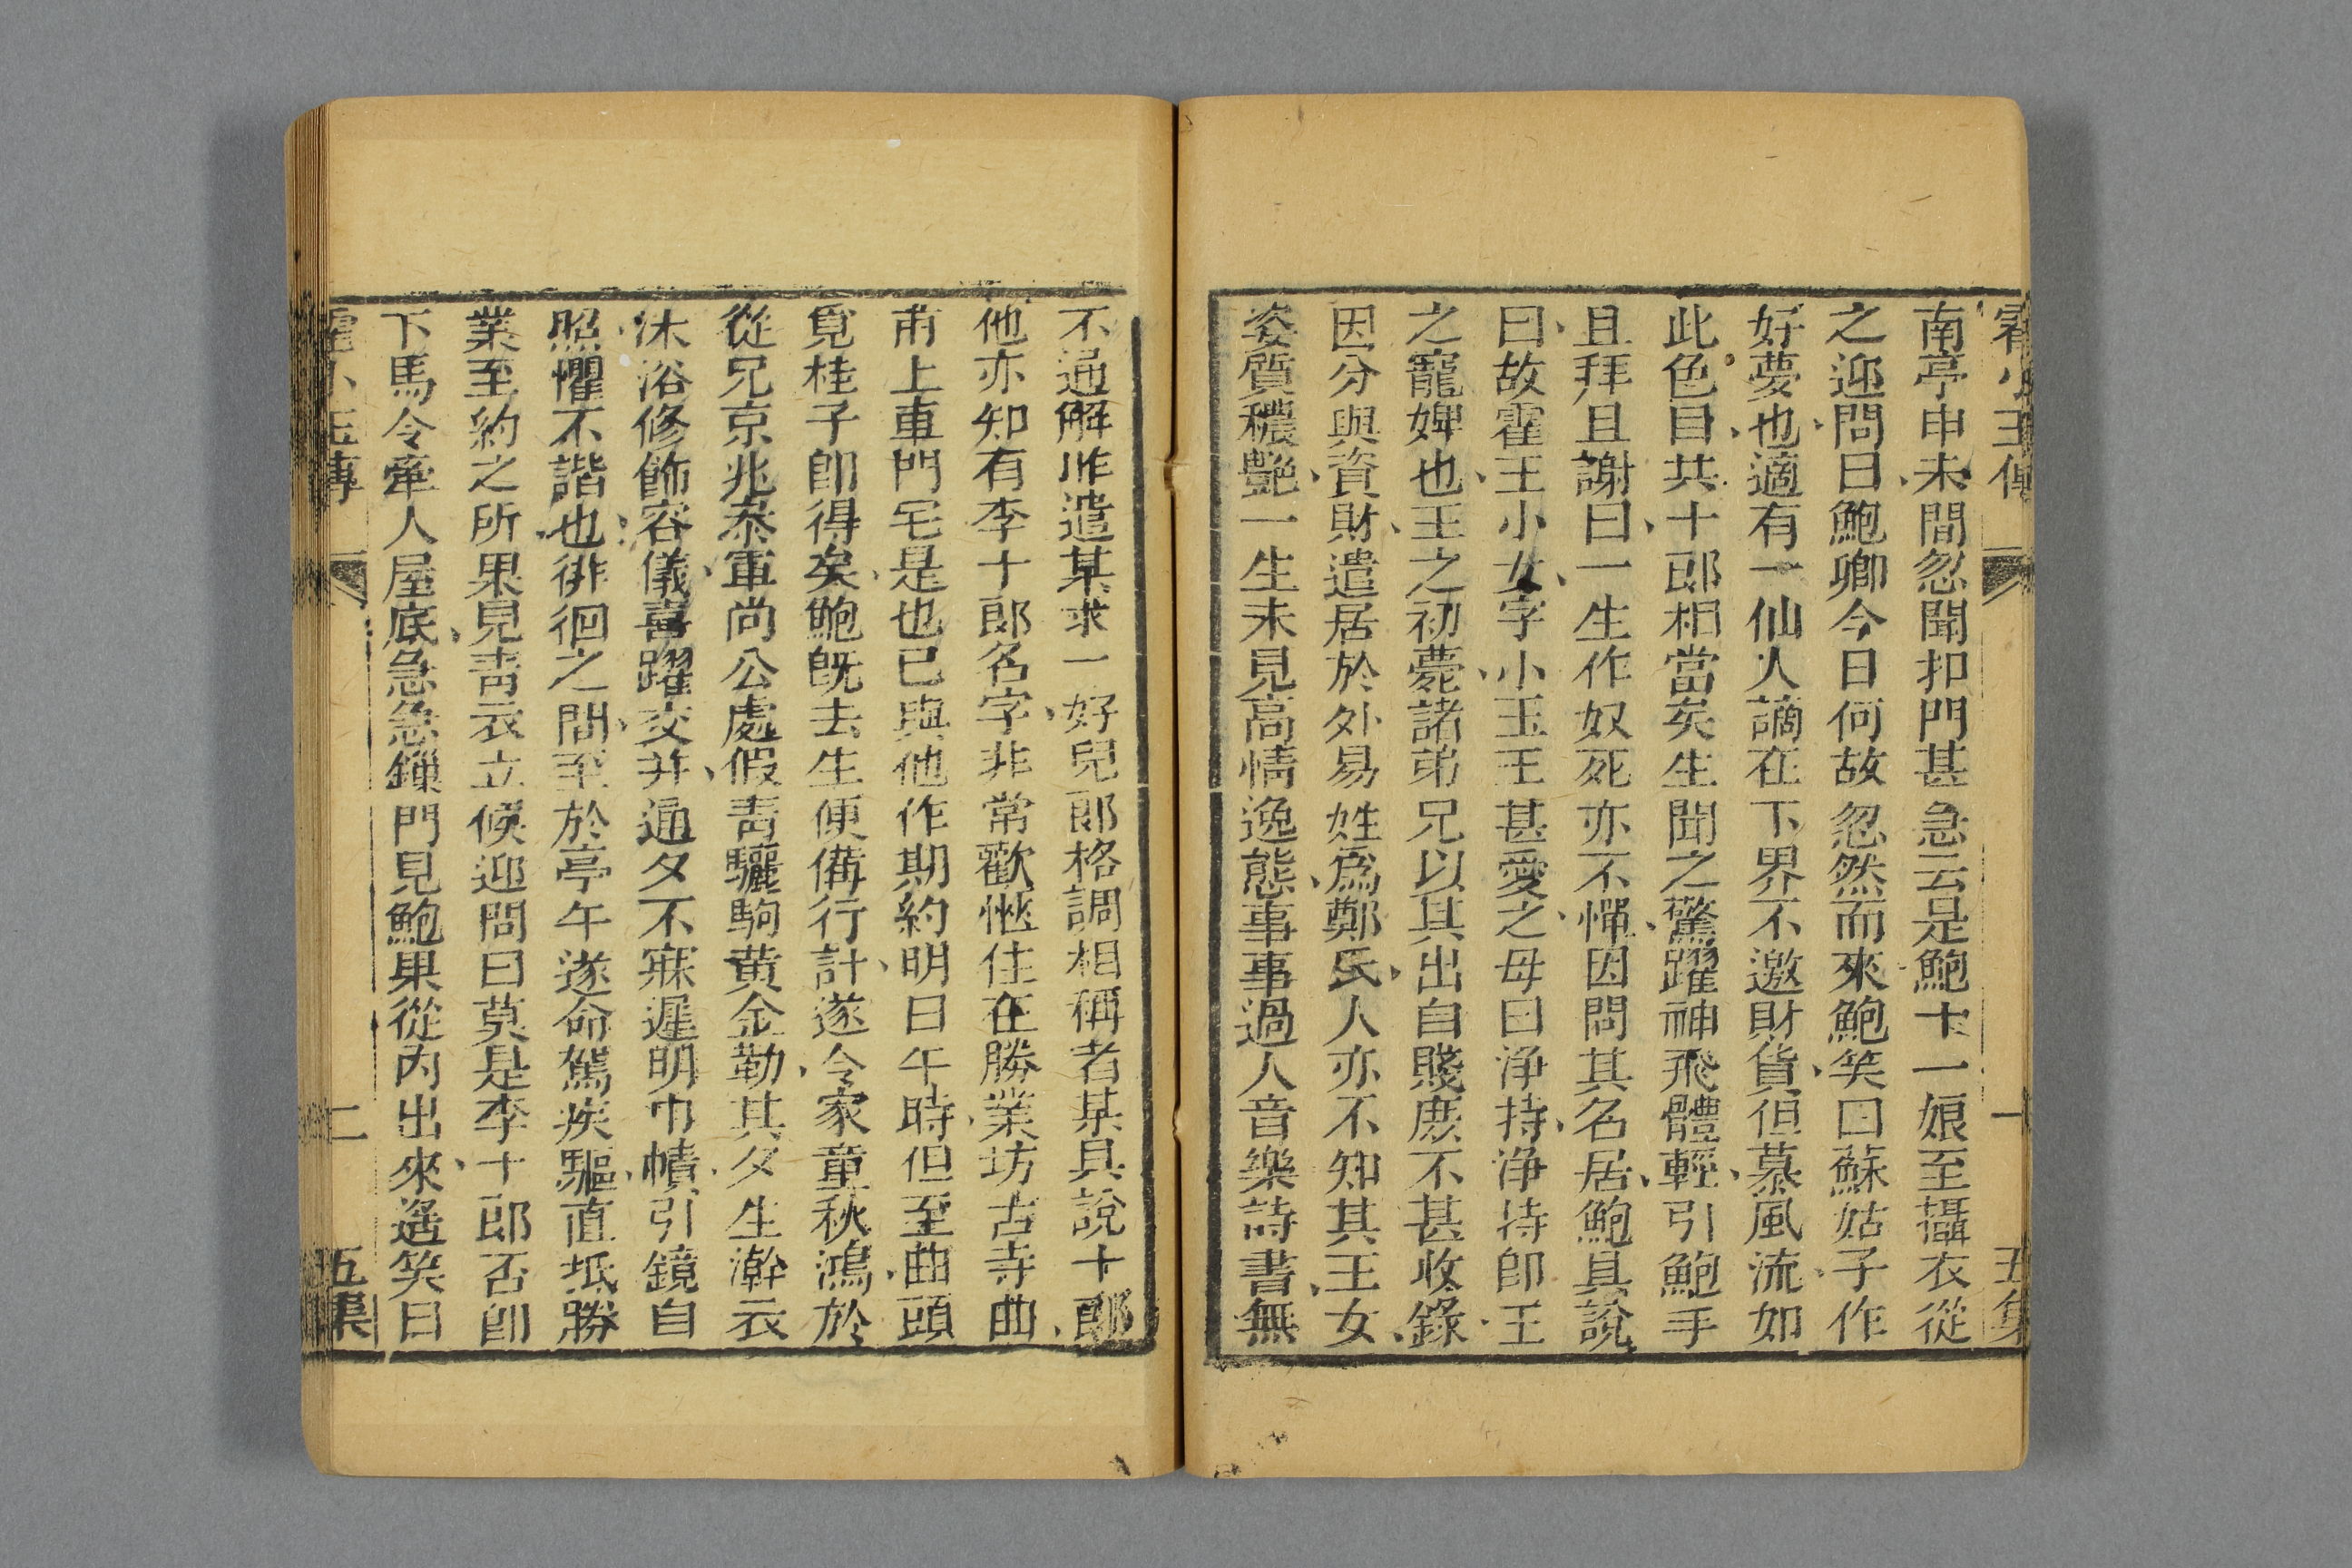 霍小玉傳 一 五集
南亭申未間忽聞扣門甚急云是鮑十一娘至攝衣從
之迎問曰鮑卿今日何故忽然而來鮑笑曰蘇姑子作
好夢也適有一仙人謫在下界不邀財貨但慕風流如
此色目共十郎相當矣生聞之驚躍神飛體輕引鮑手
且拜且謝曰一生作奴死亦不憚因問其名居鮑具說
曰故霍王小女字小玉王甚愛之母曰浄持浄持卽王
之寵婢也王之初薨諸弟兄以其出自賤庶不甚收錄
因分與資財遣居於外易姓爲鄭氏人亦不知其王女
姿質穠艷一生未見高情逸態事事過人音樂詩書無
不通解昨遣某求一好兒郎格調相稱者某具說十郎
他亦知有李十郎名字非常歡愜住在勝業坊古寺曲
甫上車門宅是也已與他作期約明日午時但至曲頭
覓桂子卽得矣鮑旣去生便備行計遂令家童秋鴻於
從兄京兆叅軍尚公處假靑驪駒黃金勒其夕生澣衣
沐浴修飾容儀喜躍交并通夕不寐遲明巾幘引鏡自
照懼不諧也徘徊之間至於亭午遂命駕疾驅直抵勝
業至約之所果見靑衣立候迎問曰莫是李十郎否卽
下馬令牽人屋底急急鏁門見鮑果從内出來遙笑曰
霍小玉傳 二 五集